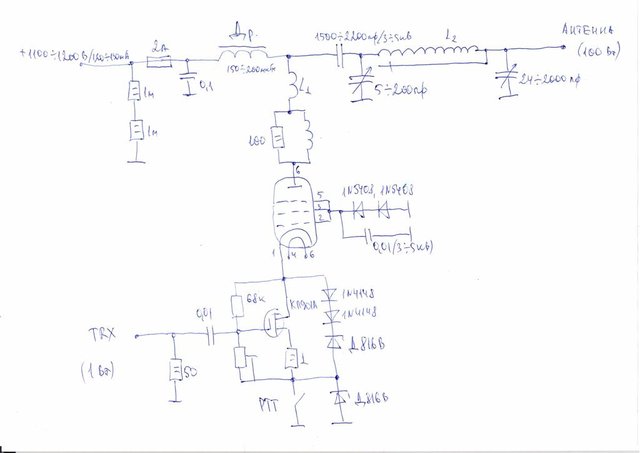 Др.
1500÷2200пф/3÷5кв
L2
АНТЕННА
(100 Вт)
+1100÷1200В/120÷150мА
2А
150÷200мкГн
0,1
5÷200пф
24÷2000пф
1м
1м
L1
100
6
5
3
2
1N5408, 1N5408
0,01/3÷5кВ)
1
4
6
68к
КП901А
1N4148
1N4148
Д816В
0,01
TRX
(1 Вт)
50
1
РТТ
Д816В